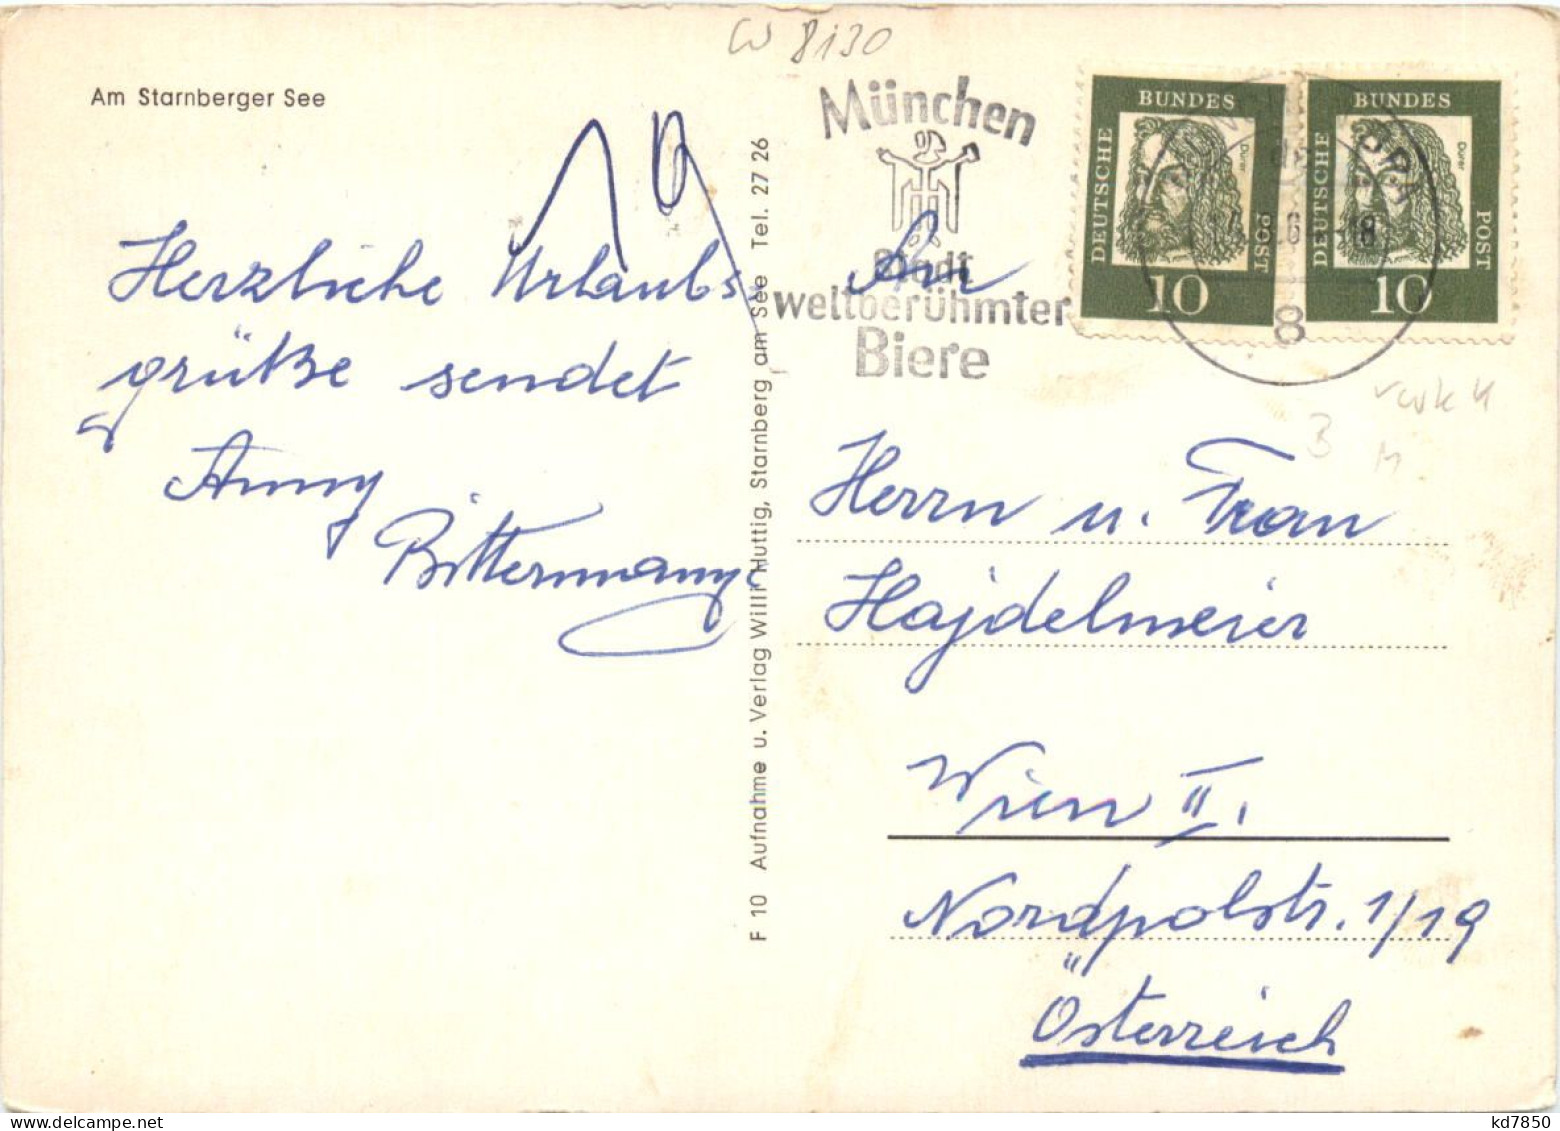 Am Starnberger See
Herzliche Urlaubs
grüße sendet
Anny
Bittermann
F 10 Aufnahme u. Verlag Willi Huttig, Starnberg am See Tel. 27 26
8130
München
Stadt
weltberühmter
Biere
DEUTSCHE
BUNDES
POST
Dürer
10
DEUTSCHE
BUNDES
POST
Dürer
10
18
8
An
Herrn u. Frau
Hajdelmeier
Wien II.
Nordpolstr. 1/19
Österreich
kd7850